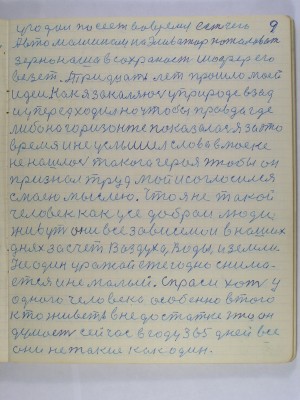 9
урожаи посеет вовремя сей
Автомашинам на Элеватор пожаловат
зерно наша в сохраност шофер его
везет. Тридцать лет прошло моей
идеи. Как я закалялся у природе взад
и упередходил но чтобы правда где
либо на горизонте показалася за это
время и не услишил слова в моей не
не нашлос такога героя чтобы он
признал труд мой и согласился
смоею мыслею. Что я не такой
человек как усе добраи люди
живут они все зависимои в наших
днях за счет Воздуха, Воды и земли
Неодин урожай ежегодно снима-
ется и не малый. Спраси хоть у
одного человека особенно в того
кто живет в недостатке что он
думает сейчас в году 365 дней все
они не такие как один.